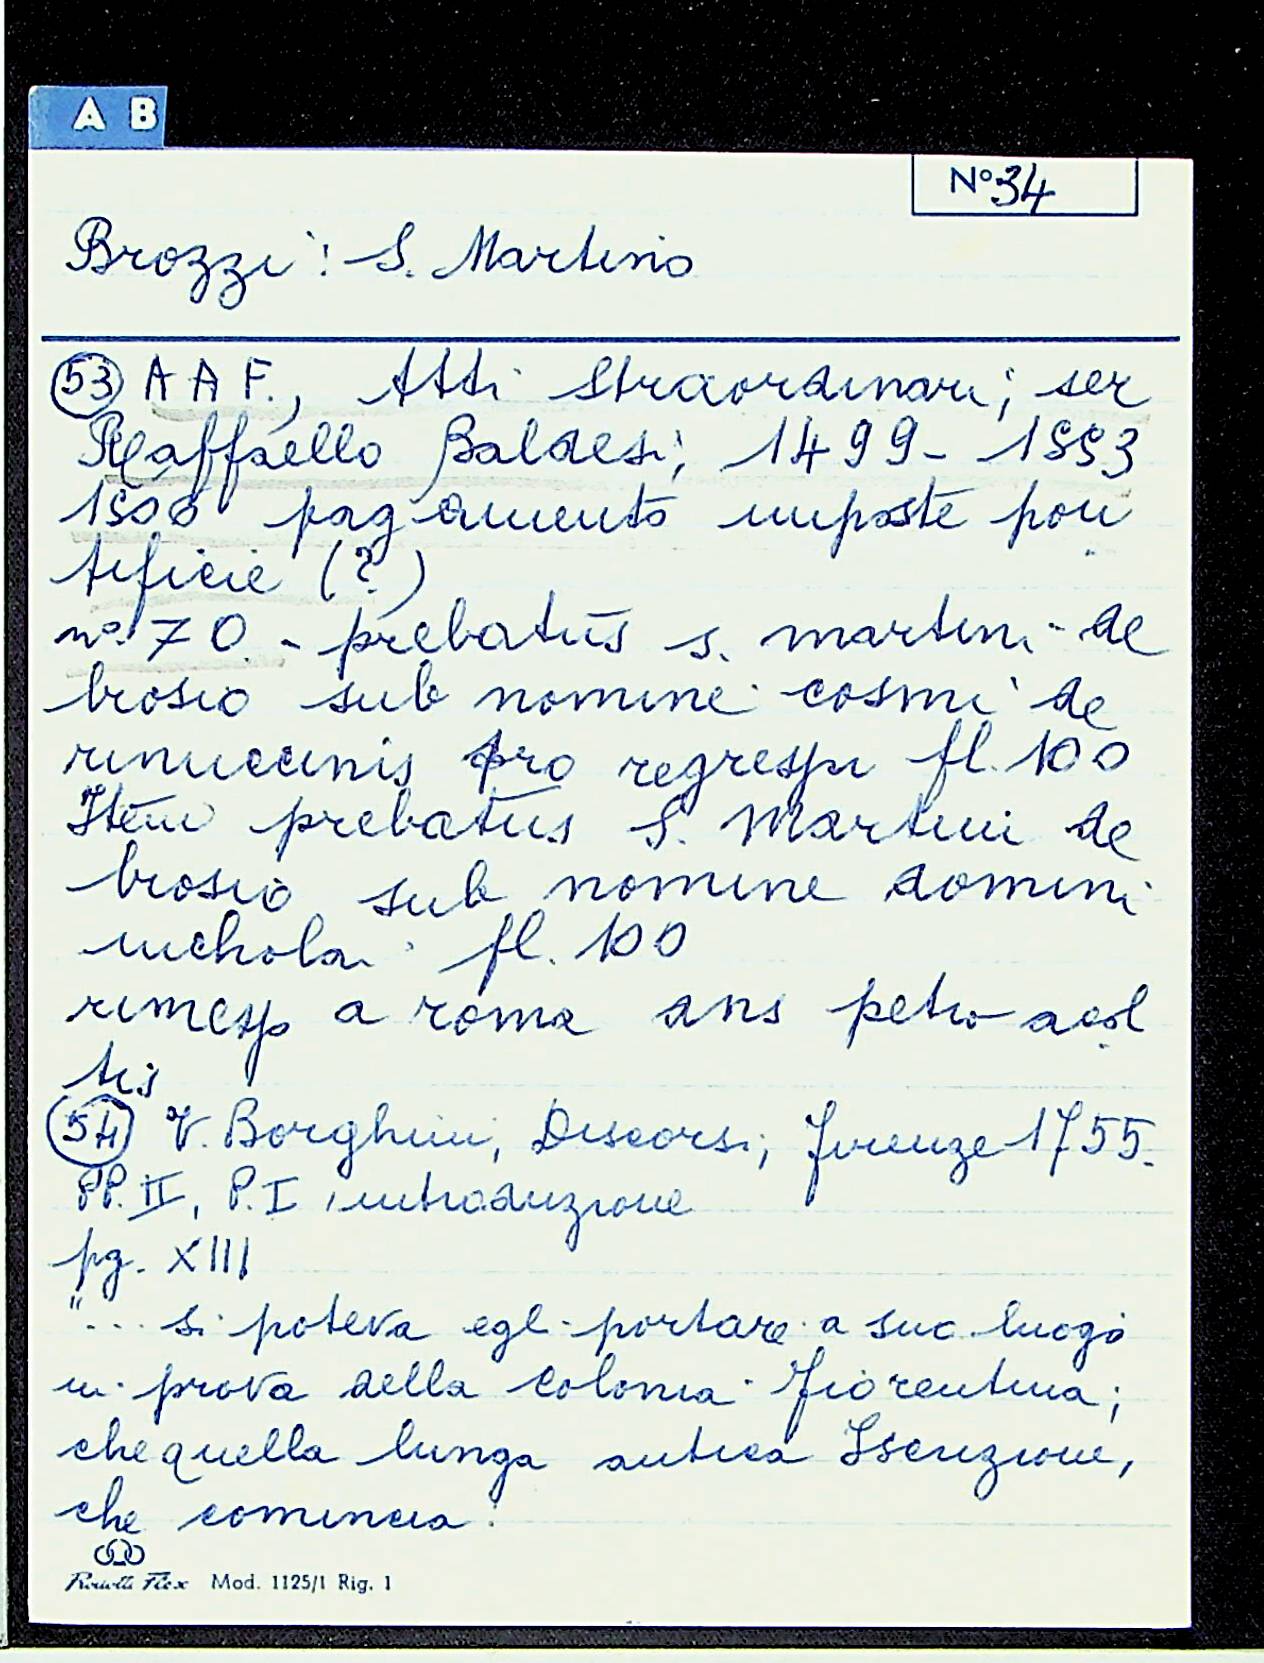 A B
N° 34
Brozzi: S. Martino
53 A A F., Atti Straordinari; ser
Raffaello Baldesi; 1499-1553
1506 pagamento imposte pon
tificie (?)
n° 70 - prebatūs s. martini de
brosio sub nomine cosmi de
rinuccinis pro regressu fl. 100
Itēm prebatūs S. Martini de
brosio sub nomine domini
nicholai fl. 100
rimesso a roma ans petro acol
tis
54 V. Borghini, Discorsi; Firenze 1755.
PP. II, P. I, introduzione
pg. XIII
"... si poteva egli portare a suo luogo
in prova della colonia Fiorentina;
che quella lunga antica Iscrizione,
che comincia:
Mod. 1125/1 Rig. 1